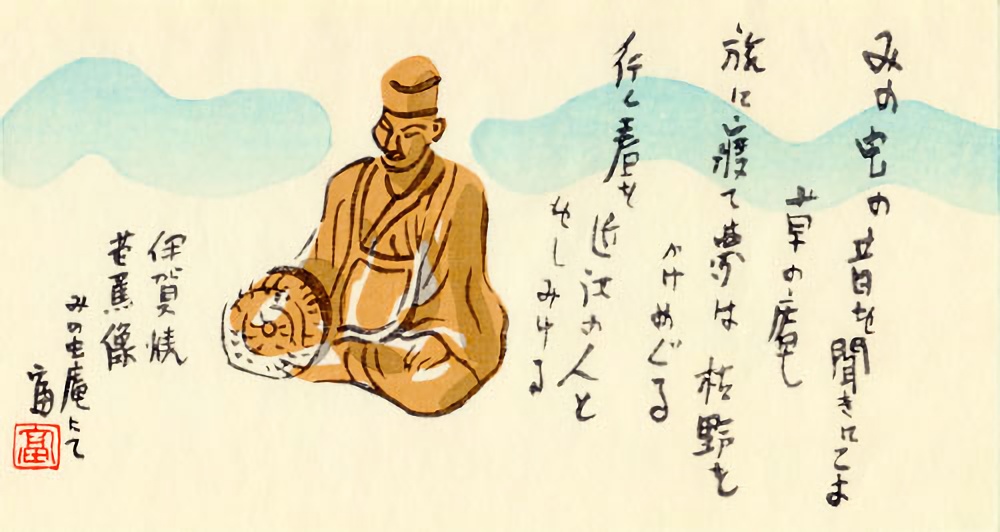 みの虫の音を聞きにこよ
草の庵
旅に寝て夢は枯野を
かけめぐる
行く春を
近江の人と
をしみける
伊賀焼
芭蕉像
みの虫庵にて
富
富